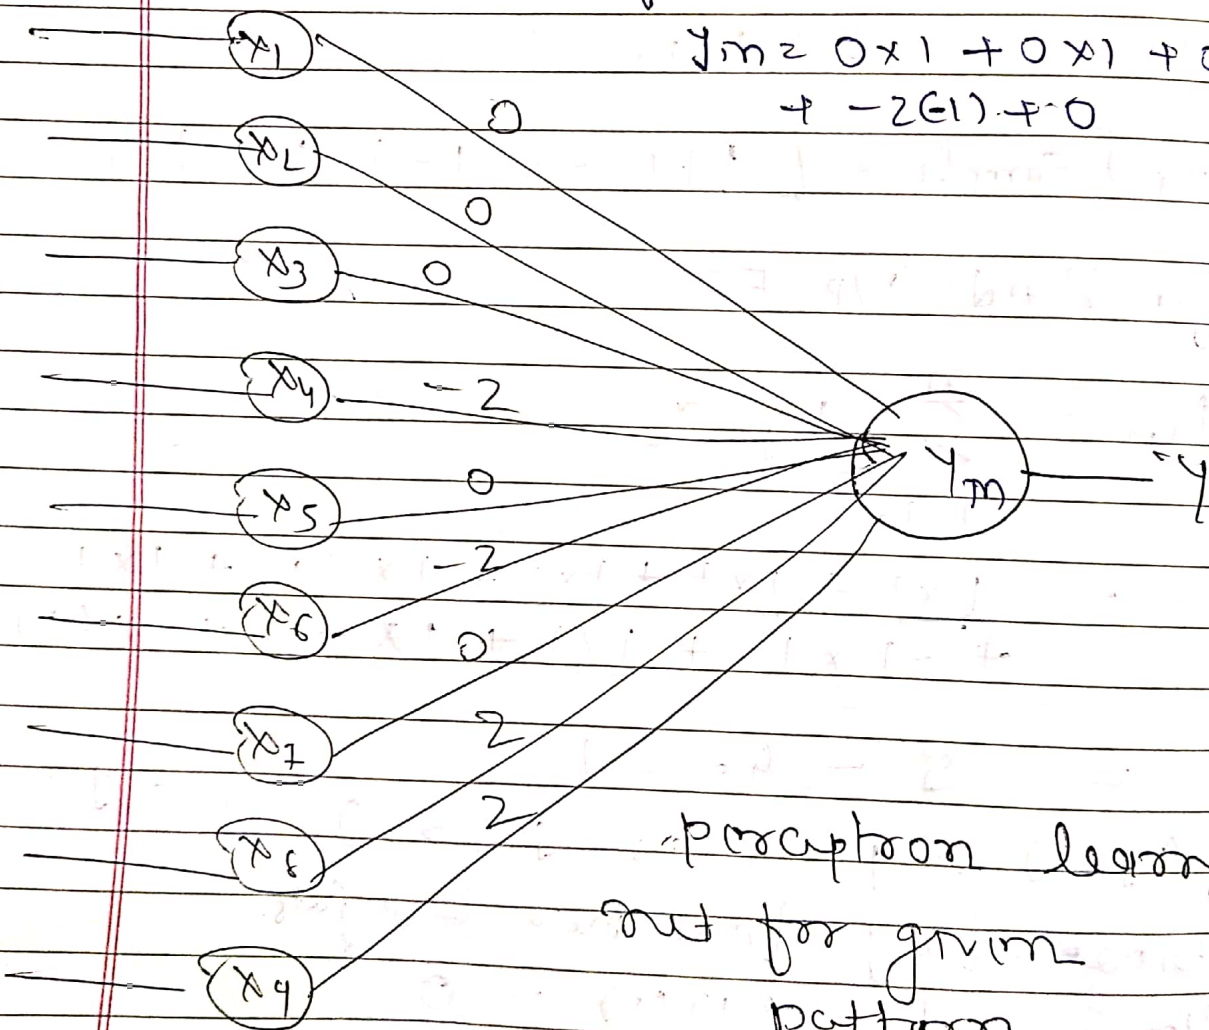 Yin = 0x1 + 0x1 +
+ -2(-1) + 0
x1
0
x2
0
x3
0
x4
-2
x5
0
x6
-2
x7
0
x8
2
x9
2
Yin
Y
perceptron learn
net for given
pattern